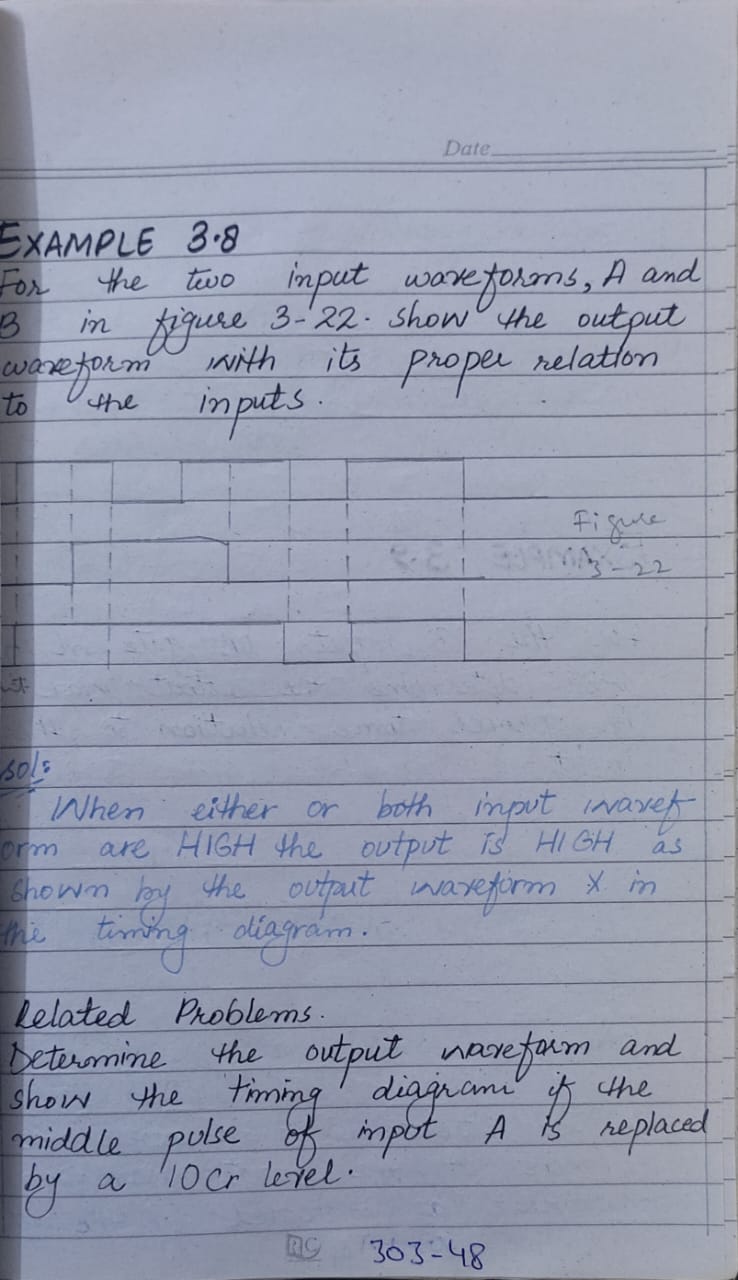 Date
EXAMPLE 3.8
For the two input waveforms, A and
B in figure 3-22. show the output
waveform with its proper relation
to the inputs.
Figure
3-22
sol:
When either or both input wavef
orm are HIGH the output is HIGH as
shown by the output waveform X in
the timing diagram.
Related Problems.
Determine the output waveform and
show the timing diagram if the
middle pulse of input A is replaced
by a 10cr level.
RC 303-48